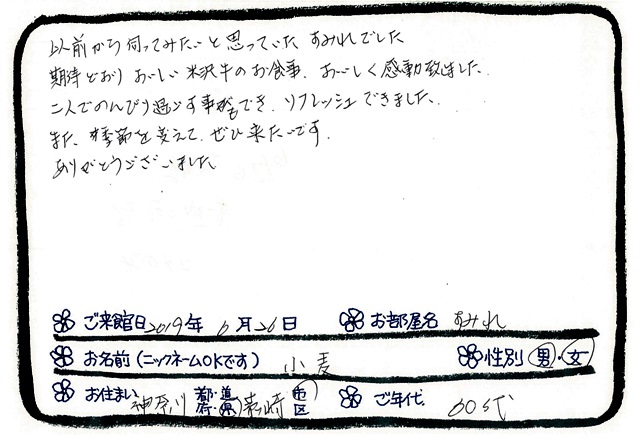 以前から伺ってみたいと思っていた すみれでした
期待どおり おいしい 米沢牛のお食事、おいしく感動致しました。
二人でのんびり過ごす事もでき、リフレッシュできました。
また、季節を変えて、ぜひ来たいです。
ありがとうございました
ご来館日 2019年 6月 26日 お部屋名 すみれ
お名前(ニックネームOKです) 小麦 性別 男・女
お住まい 神奈川 都・道 府・県 川崎 市 区 ご年代 60代